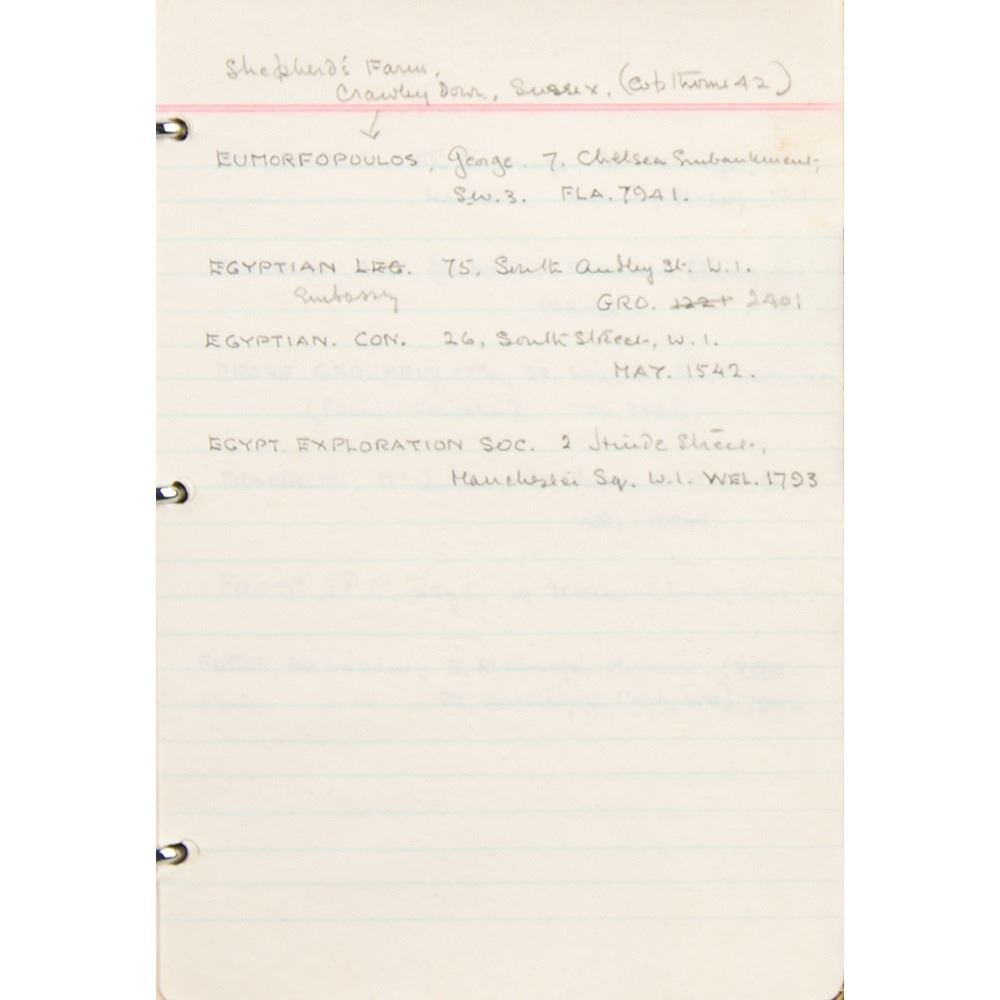 Shepherd's Farm,
Crawley Down, Sussex. (Copthorne 42)
EUMORFOPOULOS, George. 7, Chelsea Embankment,
S.W.3. FLA. 7941.
EGYPTIAN LEG. 75, South Audley St, W.1.
Embassy GRO. 1221 2401
EGYPTIAN. CON. 26, South Street, W.1.
MAY. 1542.
EGYPT. EXPLORATION SOC. 2 Hinde Street,
Manchester Sq. W.1. WEL. 1793